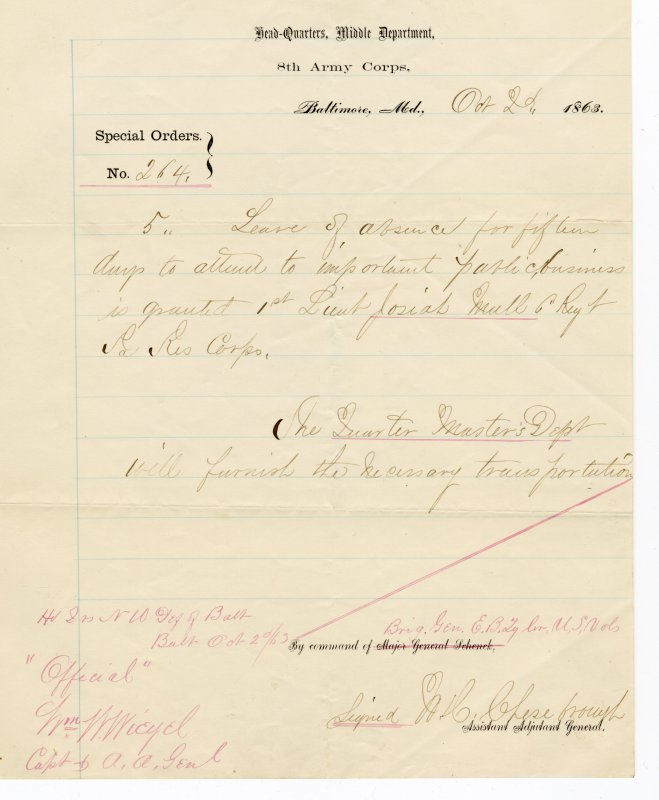 Head-Quarters, Middle Department,
8th Army Corps,
Baltimore, Md., Oct 2d, 1863.
Special Orders.
No. 264.
5,, Leave of absence for fifteen
days to attend to important public, business
is granted 1st Lieut Josiah Mull 6 Regt
Pa Res Corps.
The Quarter Master's Dept
will furnish the necessary transportation
Hd Qrs N W Def of Balt
Balt Oct 2d/63
Brig. Gen. E.B. Tyler, U.S. Vols
By command of Major General Schenck,
"Official"
Wm W. Wiegel
Capt & A. A. Genl
Signed W. H. Chesebrough
Assistant Adjutant General.